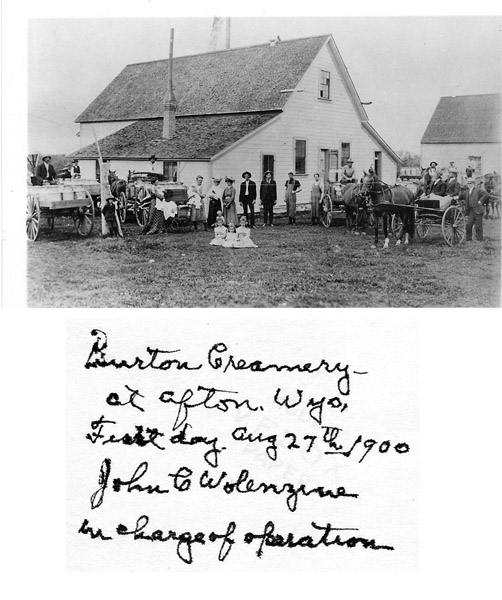 Burton Creamery -
at Afton, Wyo,
First day. Aug 27th, 1900
John C Wolenzine
in charge of operation